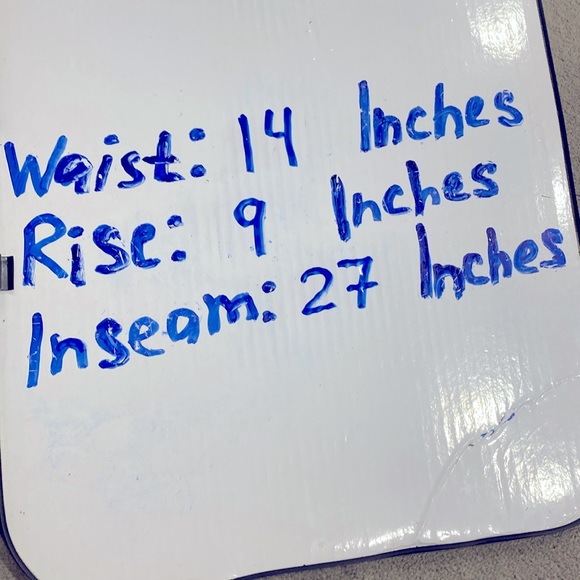 Waist: 14 Inches
Rise: 9 Inches
Inseam: 27 Inches